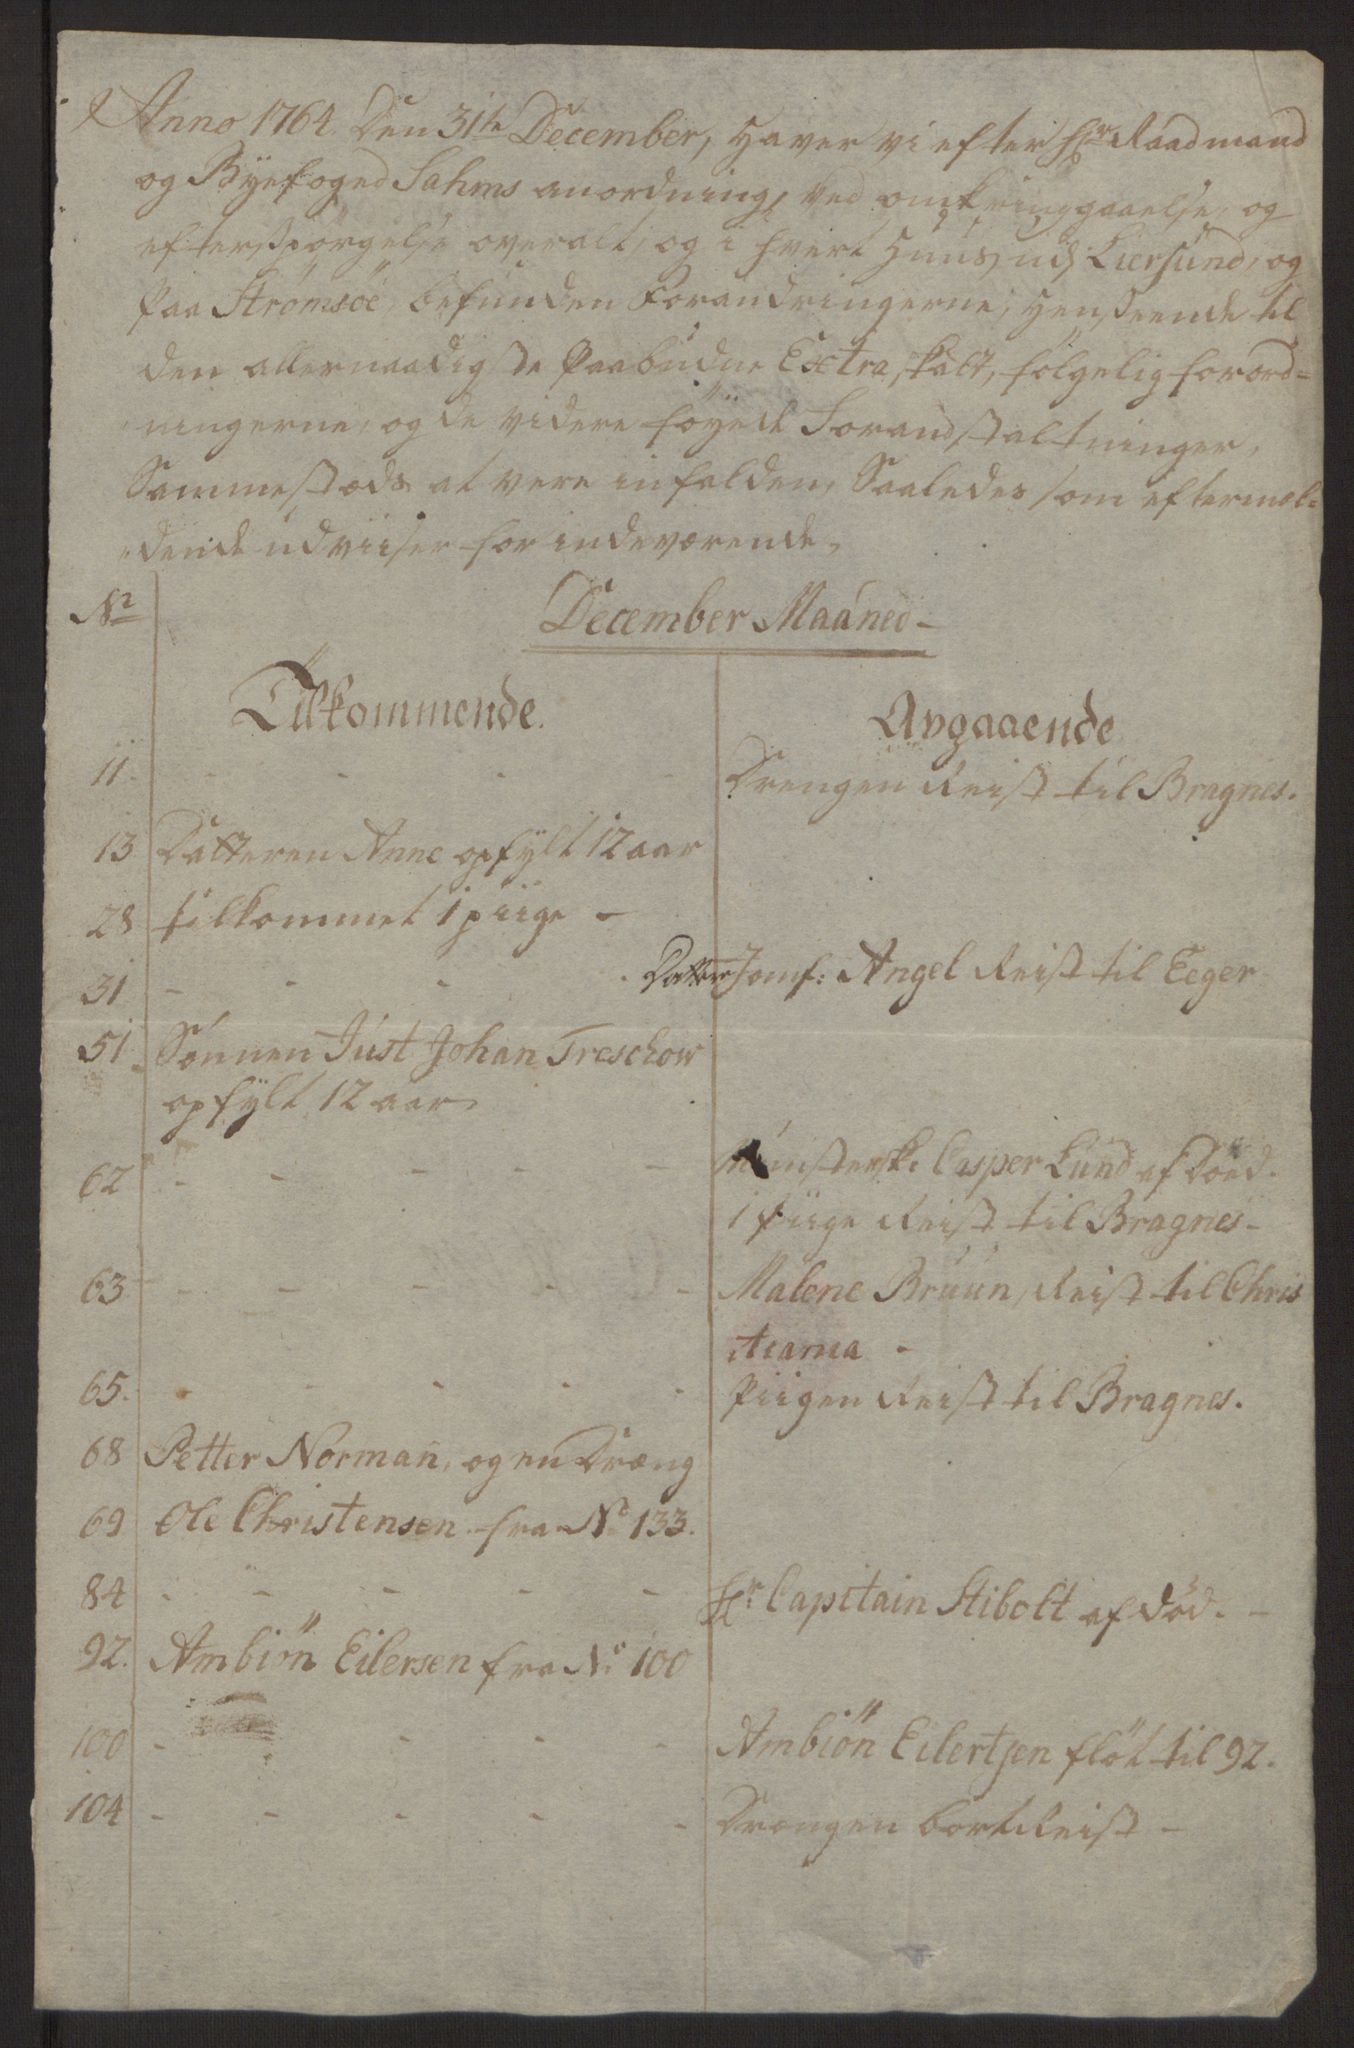 Anno 1764. Den 31te December, haver vi efter Hr Raadmand
og Byefoged Sahms anordning, ved omkringgaaelse, og
efterspørgelse overalt, og i hvert Huus, ud Liersund, og
paa Strömsöe, befunden Forandringerne, henseende til
den allernaadigste paabudne Extraskatt, følgelig forord-
ningerne, og de videre föyede Foranstaltninger,
Sammestæds at være infalden, Saaledes som eftermel-
dende udviiser for indeværende,
No
December Maaned -
Tilkommende. Avgaaende
11 - - - - Drengen Reist til Bragnes.
13 Datteren Anne opfylt 12 aar
28 tilkommet 1 piige -
31 - - - Datter Jomf: Angel Reist til Eeger
51 Sönnen Just Johan Treschow
opfylt 12 aar
62 - - - - - Casper Lund af Död.
1 piige Reist til Bragnes -
63 - - - - - Malene Bruun, Reist til Chris
tiania -
65. - - - - - Piigen Reist til Bragnes.
68 Petter Norman, og en Dræng
69 Ole Christensen fra No 133.
84 - - - - - Hr Capitain Stibolt af död. -
92. Ambiön Eilersen fra No 100
100 - - - - Ambiön Eilertsen flöt til 92.
104 - - - - - Drængen bortReist -